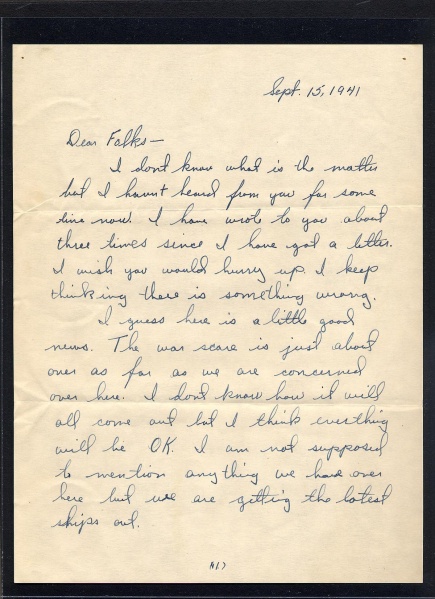 Sept. 15, 1941
Dear Folks—
I dont know what is the matter
but I havnt heard from you for some
time now. I have wrote to you about
three times since I have got a letter.
I wish you would hurry up. I keep
thinking there is something wrong.
I guess here is a little good
news. The war scare is just about
over as far as we are concerned
over here. I dont know how it will
all come out but I think everthing
will be OK. I am not supposed
to mention anything we have over
here but we are getting the latest
ships out.